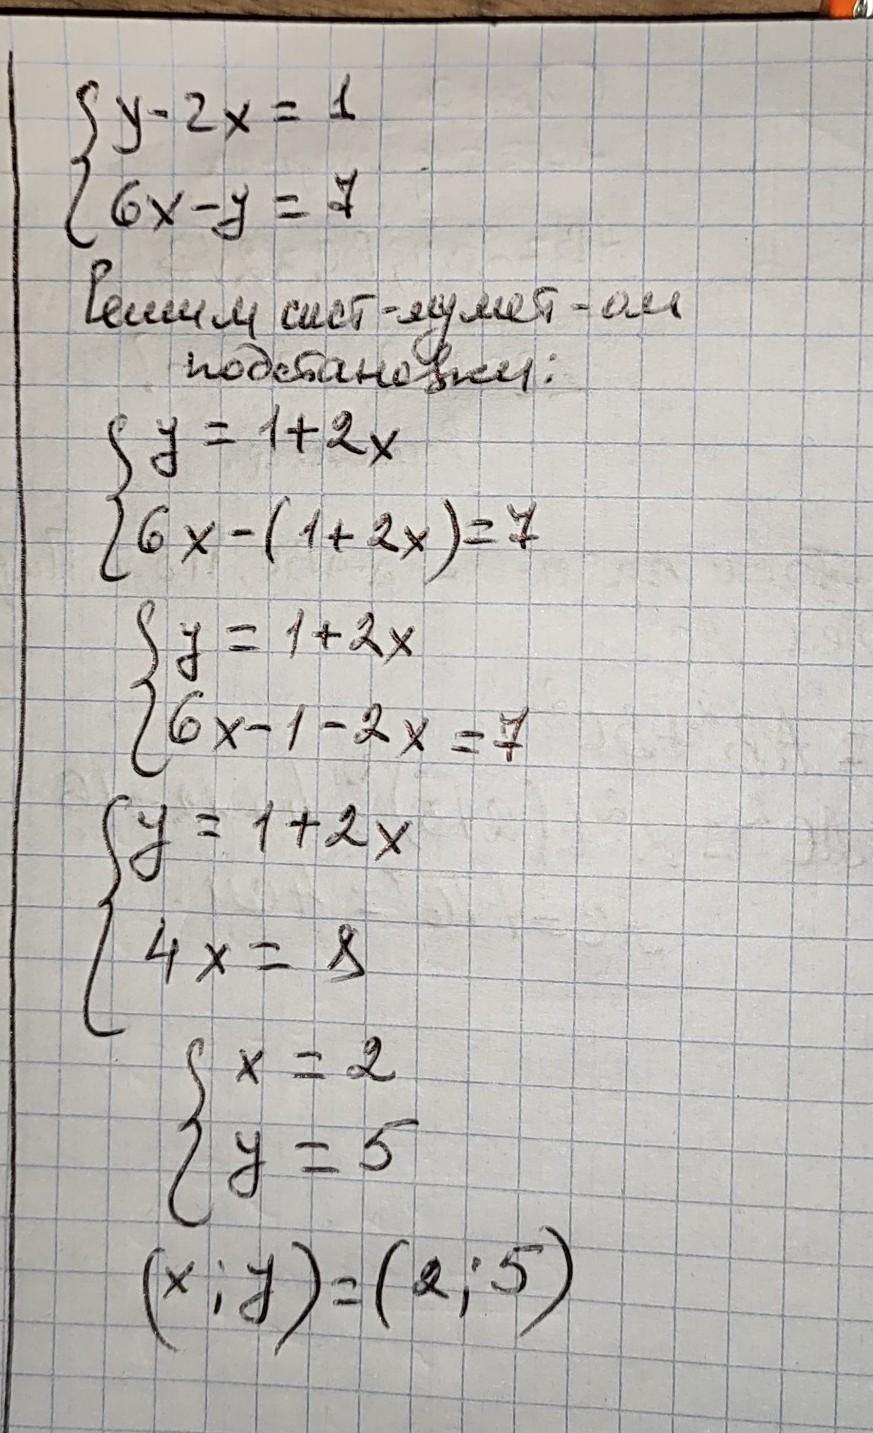 y-2x = 1
6x-y = 7
Решим сист-му мет-ом
подстановки:
y = 1+2x
6x-(1+2x)=7
y = 1+2x
6x-1-2x =7
y = 1+2x
4x = 8
x = 2
y = 5
(x;y)=(2;5)